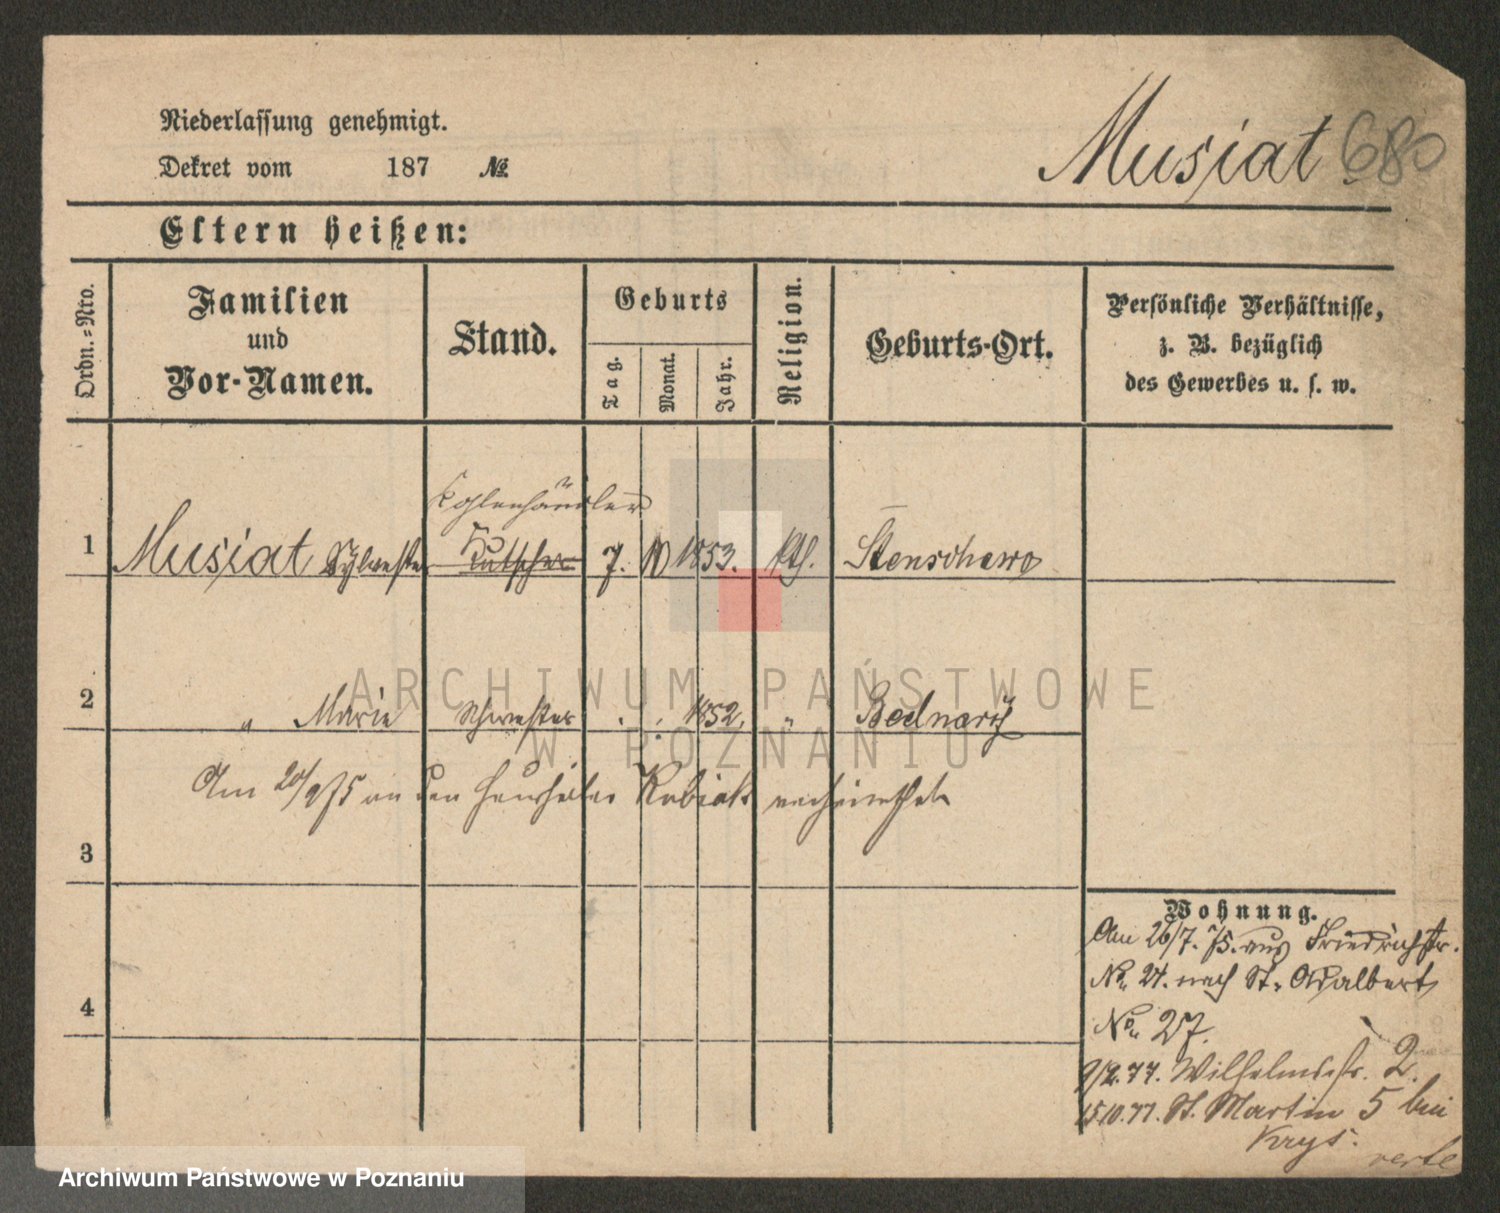 Niederlassung genehmigt.
Dekret vom 187 №
Musiat 680
Eltern heißen:
Ordn.-Nro.
Familien
und
Vor-Namen.
Stand.
Geburts
Tag.
Monat.
Jahr.
Religion.
Geburts-Ort.
Persönliche Verhältnisse,
z. B. bezüglich
des Gewerbes u. s. w.
Kohlenhändler
1 Musiat Sylvester Kutscher 7. 10 1853. kth. Stenschewo
2 " Marie Schwester . . 1852. " Bednary
Am 20/9 75 an den Haushälter Kubiak verheirathet
3
4
Wohnung.
Am 26/7. 75. aus Friedrichstr.
No. 21. nach St. Adalbert
No. 27.
9/2. 77. Wilhelmsstr. 2.
15.10.77. St. Martin 5 bei
Krys.
verte
ARCHIWUM PAŃSTWOWE
W POZNANIU
Archiwum Państwowe w Poznaniu